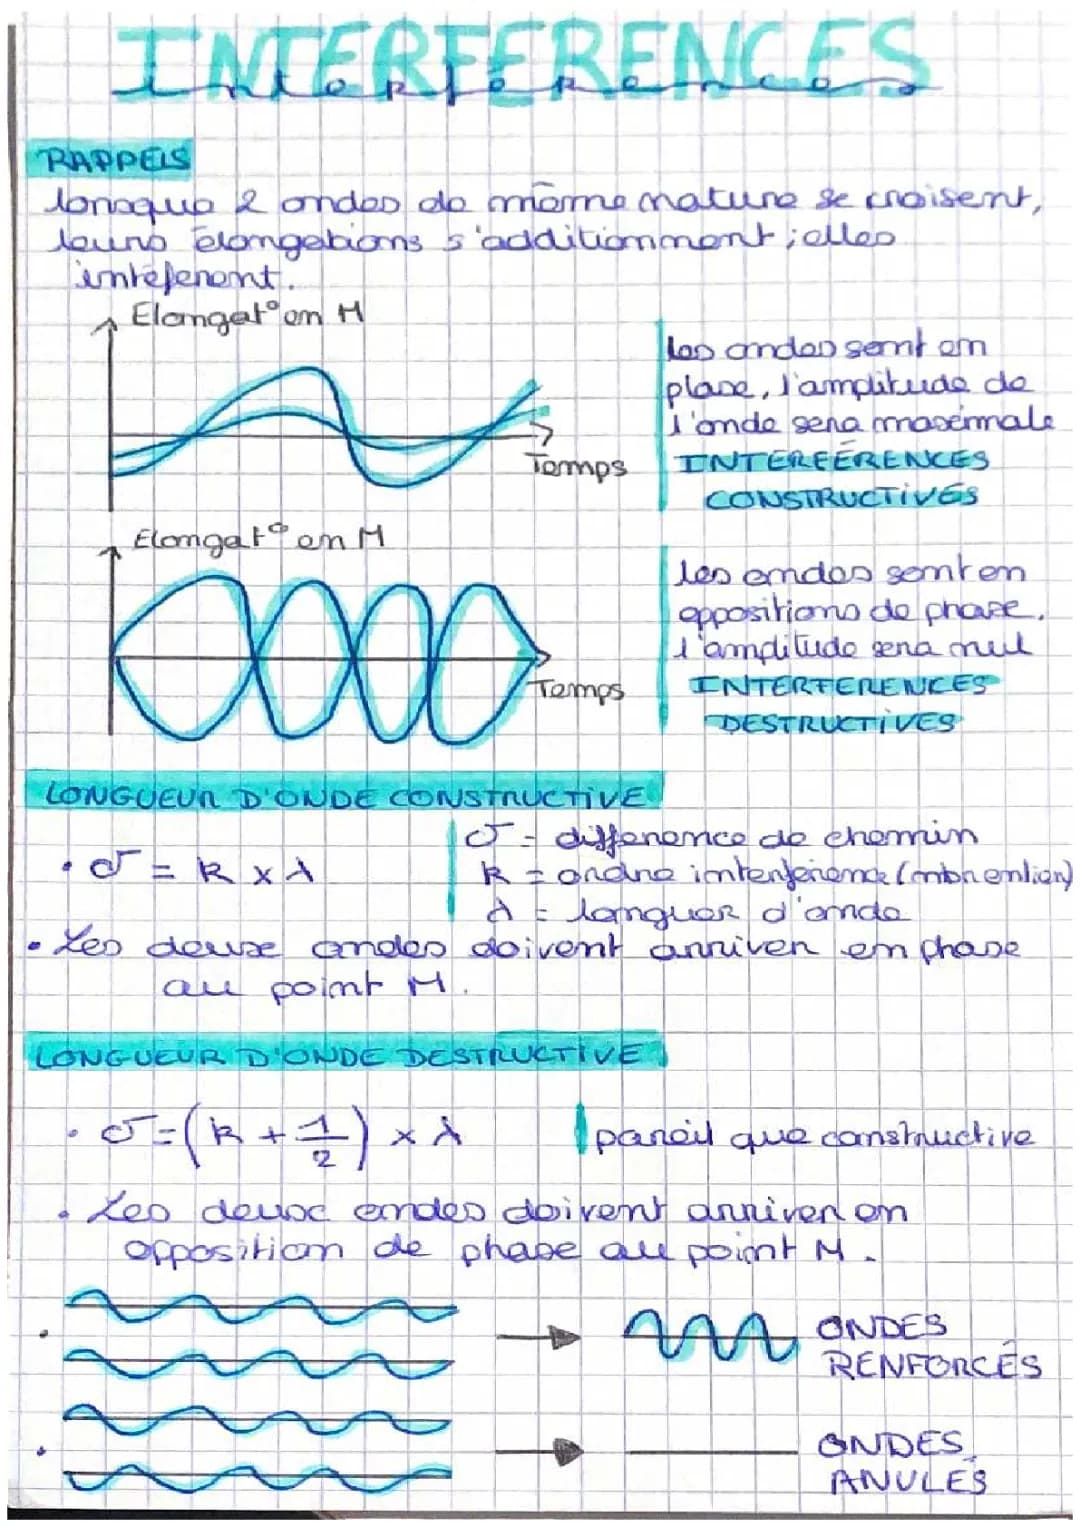 INTERFERENCES
Interférences
RAPPELS
lorsque 2 ondes de même nature se croisent,
leurs élongations s'additionnent ; elles
intéferent.
Elongat° en M
les ondes sont en
phase, l'amplitude de
l'onde sera maximale
Temps
INTERFÉRENCES
CONSTRUCTIVES
Elongat° en M
les ondes sont en
oppositions de phase.
l'amplitude sera nul
Temps
INTERFERENCES
DESTRUCTIVES
LONGUEUR D'ONDE CONSTRUCTIVE
δ = différence de chemin
• δ = k x λ
k = ordre interférence (nbr entier)
λ = longuer d'onde
• Les deux ondes doivent arriver en phase
au point M.
LONGUEUR D'ONDE DESTRUCTIVE
• δ = (k + 1/2) x λ
pareil que constructive
• Les deux ondes doivent arriver en
opposition de phase au point M.
ONDES
RENFORCÉS
ONDES
ANULÉS